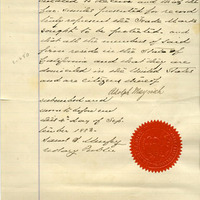 has
for record
truly represent the Trade Mark
sought to be protected, and
that all the members of said
firm reside in the State of
California and that they are
domiciled in the United States
and are citizens thereof.
Adolph
Subscribed and
sworn to before me
this 4th day of Sep
tember 1883.
Saml S. Murphy
Notary Public